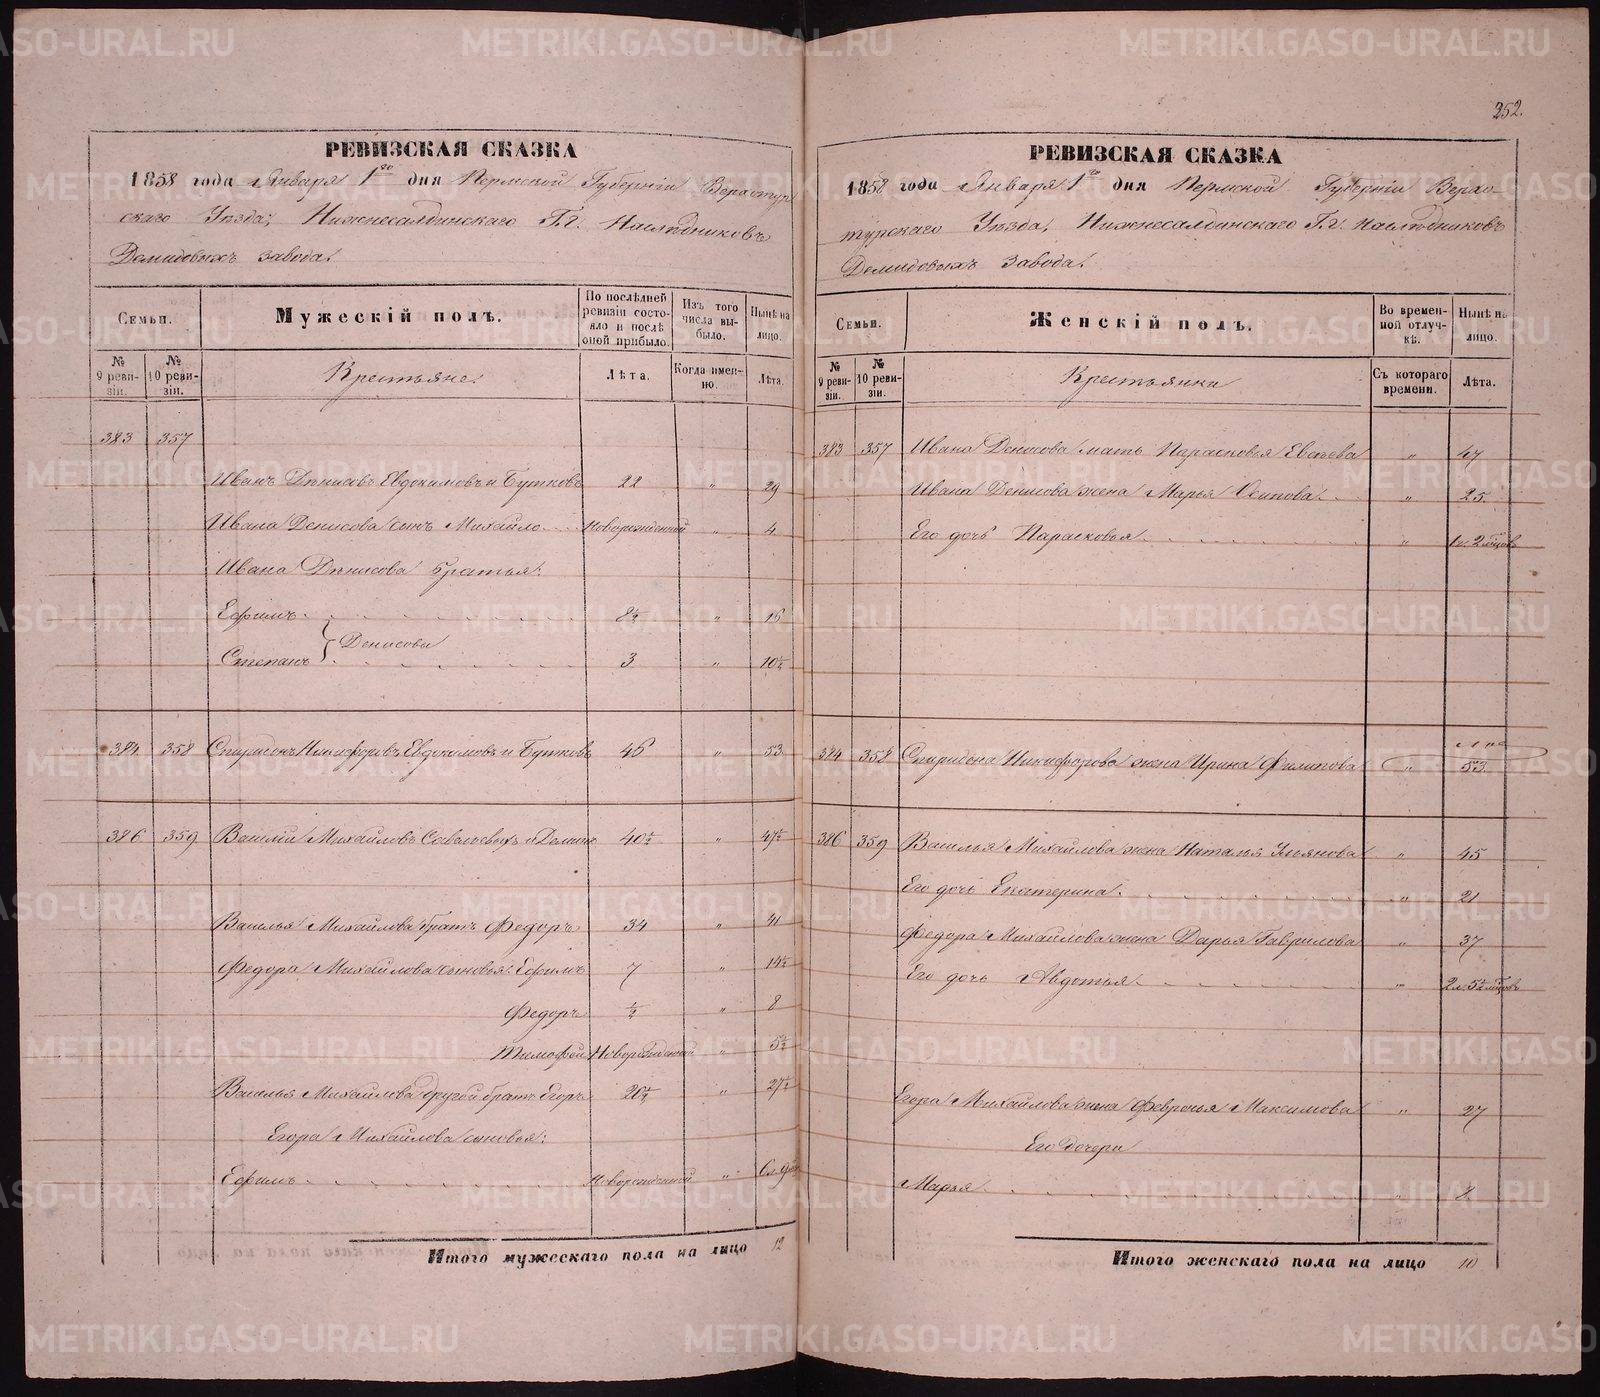 РЕВИЗСКАЯ СКАЗКА
1858 года Января 1го дня Пермской Губерніи Верхотур
скаго Уѣзда, Нижнесалдинскаго Г.г. Наслѣдниковъ
Демидовыхъ завода.
Семьи.
Мужескій полъ.
По послѣдней ревизіи состояло и послѣ оной прибыло.
Изъ того числа выбыло.
Нынѣ на лицо.
№ 9 ревизіи.
№ 10 ревизіи.
Крестьяне.
Лѣта.
Когда именно.
Лѣта.
383 357
Иванъ Денисовъ Евдокимовъ и Бутковъ 22 „ 29
Ивана Денисова сынъ Михайло Новорожденной „ 4
Ивана Денисова братья:
Ефимъ 8½ „ 16
Денисовы
Степанъ 3 „ 10½
384 358 Спиридонъ Никифоровъ Евдокимовъ и Бутковъ 46 „ 53
386 359 Василій Михайловъ 40½ „ 47½
Василья Михайлова братъ Федоръ 34 „ 41
Федора Михайлова сыновья: Ефимъ 7 „ 14½
Федоръ ½ „ 8
Тимофей Новорожденной „ 5½
Василья Михайлова другой братъ Егоръ 20½ „ 27½
Егора Михайлова сыновья:
Ефимъ Новорожденной „
Итого мужескаго пола на лицо 12
352.
РЕВИЗСКАЯ СКАЗКА
1858 года Января 1го дня Пермской Губерніи Верхо-
турскаго Уѣзда, Нижнесалдинскаго Г.г. Наслѣдниковъ
Демидовыхъ завода.
Семьи.
Женскій полъ.
Во временной отлучкѣ.
Нынѣ на лицо.
№ 9 ревизіи.
№ 10 ревизіи.
Крестьянки
Съ котораго времени.
Лѣта.
383 357 Ивана Денисова мать Парасковья „ 47
Ивана Денисова жена Марья Осипова „ 25
Его дочь Парасковья „
384 358 Спиридона Никифорова жена Ирина Филипова „ 53
386 359 Василья Михайлова жена Наталья Ульянова „ 45
Его дочь Екатерина „ 21
Федора Михайлова жена Дарья Гаврилова „ 37
Его дочь Авдотья „
Егора Михайлова жена Февронья Максимова „ 27
Его дочери
Марья „ 8
Итого женскаго пола на лицо 10
METRIKI.GASO-URAL.RU